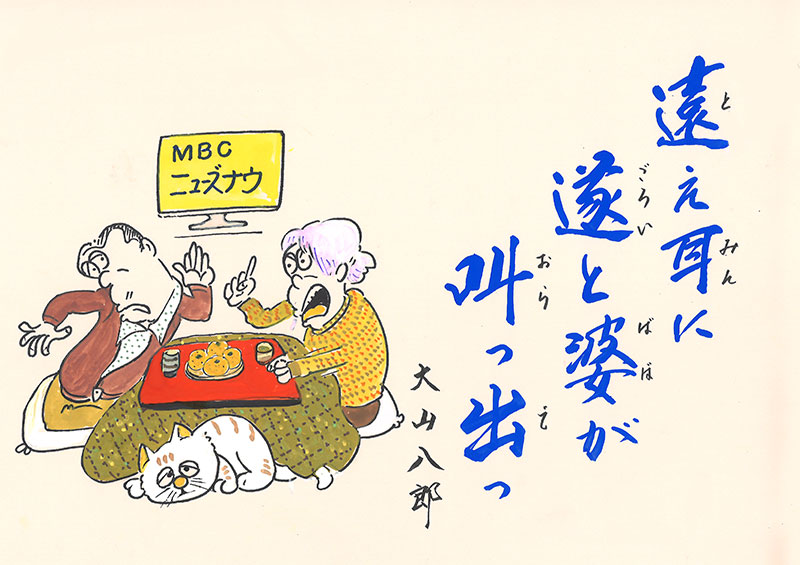 と みん
遠え耳に
ごろい ばば
遂と婆が
おら
叫っ出っ
大山八郎
MBC
ニューズナウ